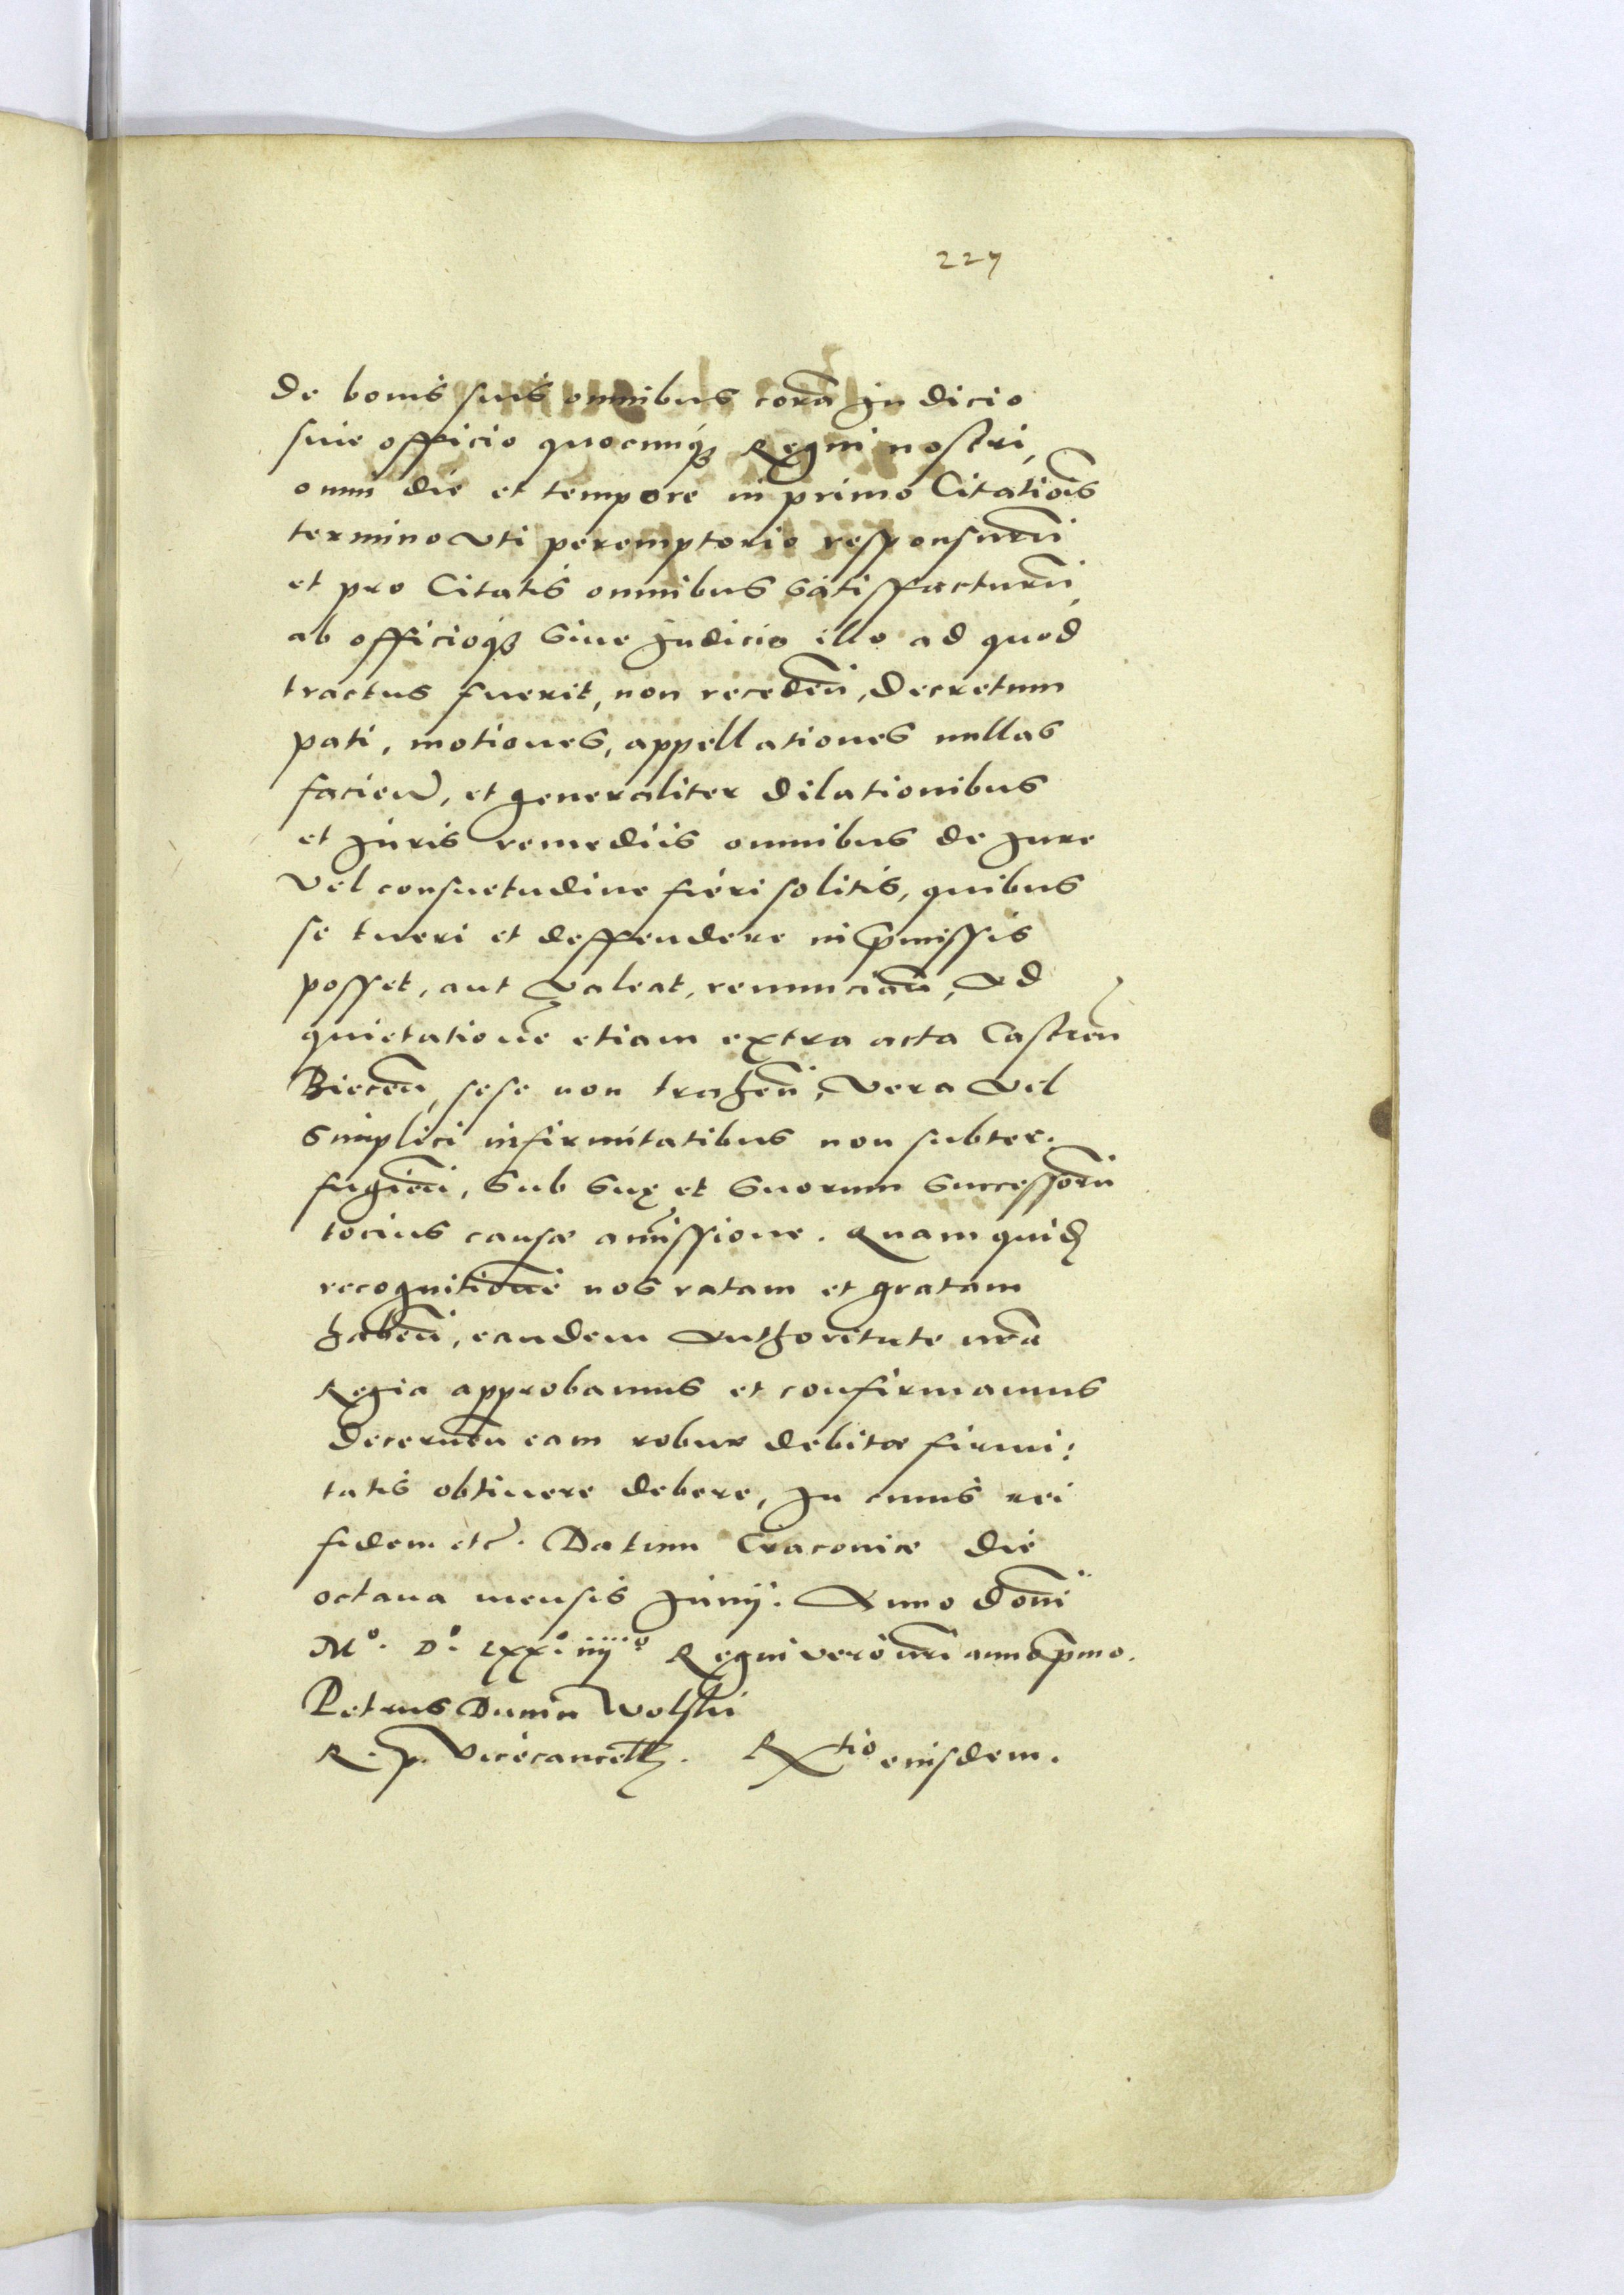 227
de bonis suis omnibus corā Judicio
sive officio quocunqꝫ Regni nostri,
omni die et tempore in primo Citatiōis
termino uti peremptorio responsurū
et pro Citatis omnibus satisfacturū,
ab officioqꝫ sive Judicio illo ad quod
tractus fuerit, non recedeñ, decretum
pati, motiones, appellationes nullas
facieñ, et generaliter dilationibus
et Juris remediis omnibus de Jure
vel consuetudine fieri solitis, quibus
se tueri et deffendere in p̄missis
posset, aut valeat, renunciañ, Ad
quietationē etiam extra acta Castreñ
Bieceñ, sese non traheñ, Vera vel
simplici infirmitatibus non subter-
fugieñ, sub suę et suorum successorū
tocius causæ amissione. Quam quid̃
recognitionē nos ratam et gratam
habeñ, eandem Authoritate nrā
Regia approbamus et confirmamus
decerneñ eam robur debitæ firmi:
tatis obtinere debere, In cuius rei
fidem etc̃. Datum Cracoviæ die
octava mensis Junij. Anno dōni
Mº. Dº. LXXº. iiijº. Regni vero nr̃i anno p̄mo.
Petrus Dunin Wolski
R. p. Vicecancell̃. Rtio eiusdem.